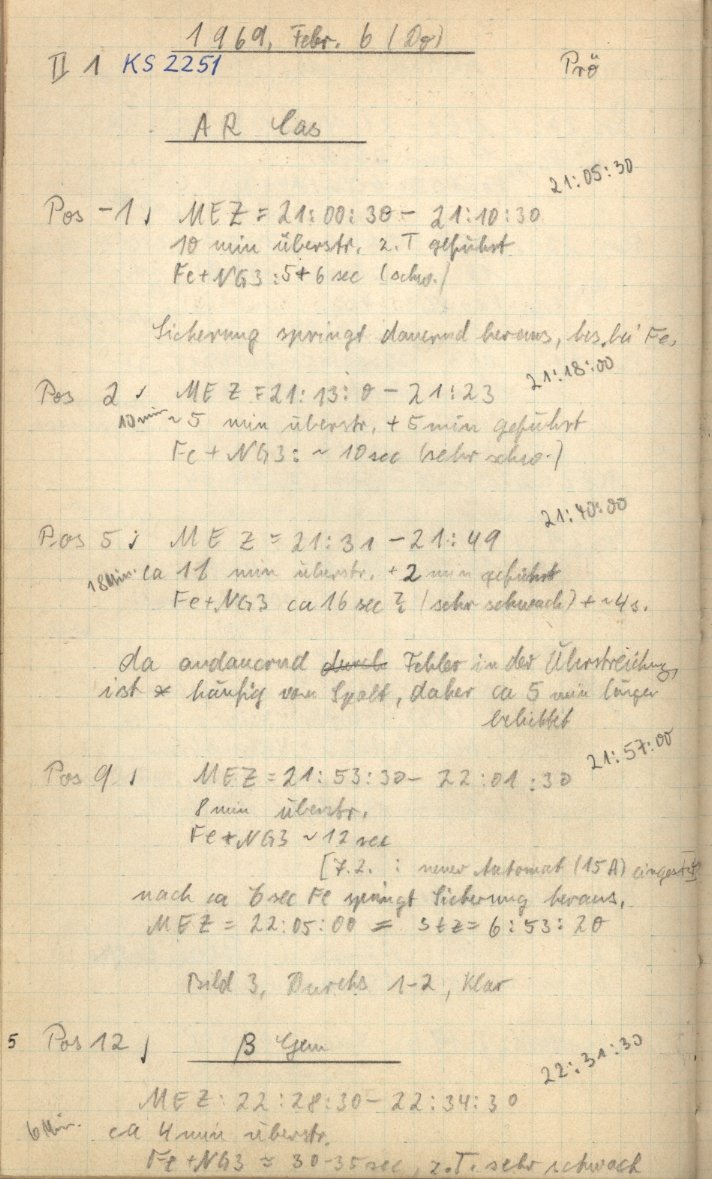 1969, Febr. 6 (Do)
II 1 KS 2251 Prö
AR Cas
21:05:30
Pos -1, MEZ = 21:00:30 - 21:10:30
10 min überstr. z.T geführt
Fe+NG3 : 5+6 sec (schw.)
Sicherung springt dauernd heraus, bes. bei Fe.
21:18:00
Pos 2, MEZ = 21:13:0 - 21:23
10min ~5 min überstr. + 5min geführt
Fe + NG3: ~ 10sec (sehr schw.)
21:40:00
Pos 5; MEZ = 21:31 - 21:49
18Min. ca 11 min überstr. + 2 min geführt
Fe+NG3 ca 16 sec (sehr schwach) + ~4s.
da andauernd durch Fehler in der Überstreichung
ist * häufig vom Spalt, daher ca 5 min länger
belichtet
21:57:00
Pos 9, MEZ = 21:53:30 - 22:01:30
8 min überstr.
Fe+NG3 ~ 12 sec
[7.2. : neuer Automat (15A)
nach ca 6sec Fe springt Sicherung heraus.
MEZ = 22:05:00 = Stz = 6:53:20
Bild 3, Durchs 1-2, klar
5 Pos 12, β Gem
22:31:30
MEZ: 22:28:30 - 22:34:30
6 Min. ca 4 min überstr.
Fe+NG3 ≈ 30-35 sec, z.T. sehr schwach